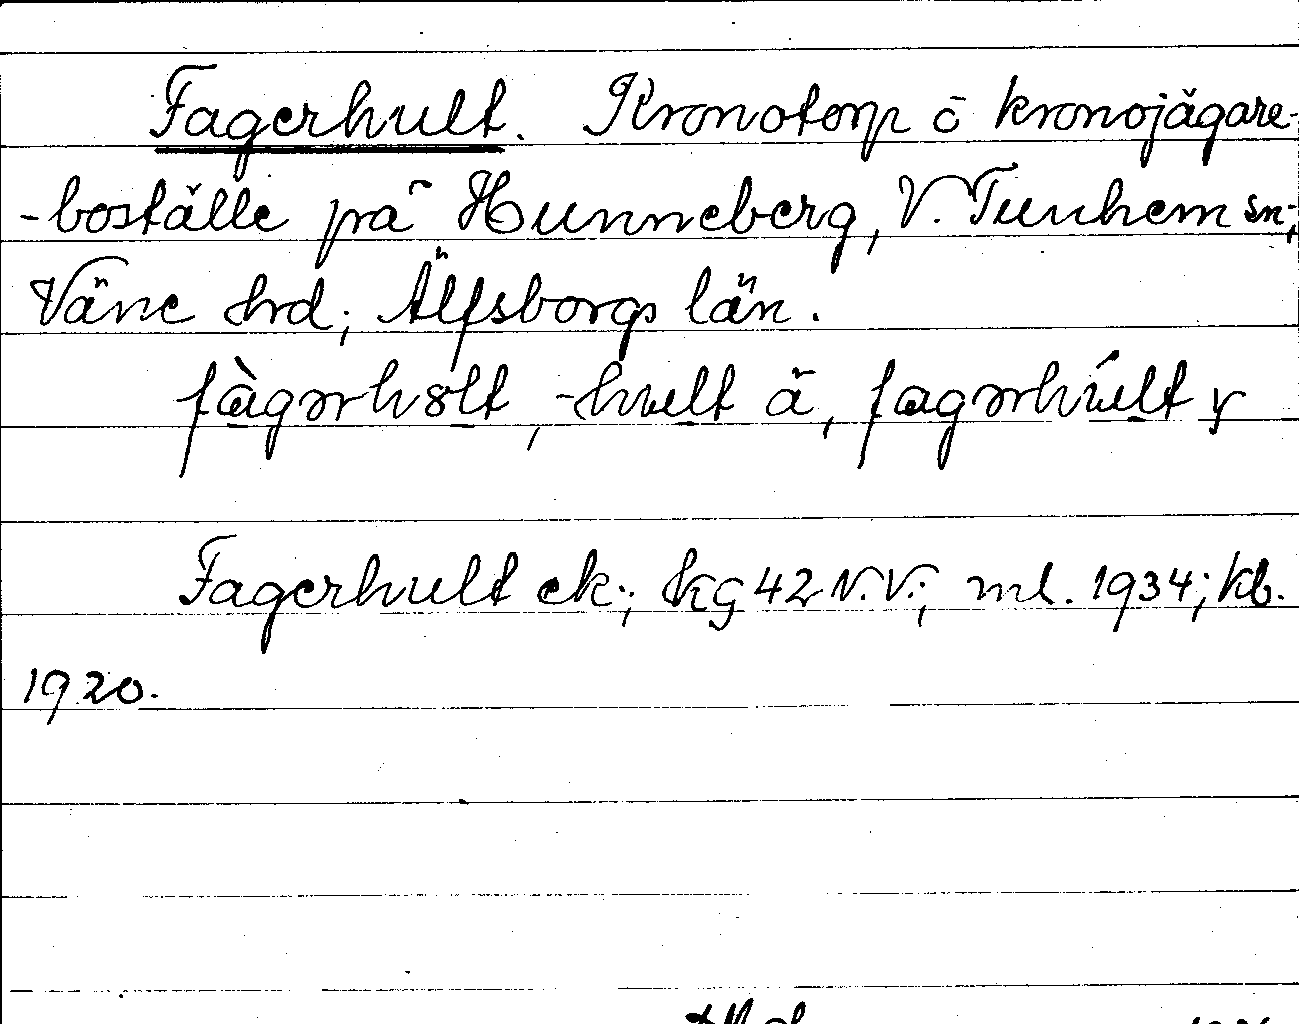 Fagerhult. Kronotorp o kronojägare-
-boställe på Hunneberg, V. Tunhem sn;
Väne hrd; Älfsborgs län.
fàgərhɷlt, -hult ä, fagərhúlt y
Fagerhult ek; kg 42 N.V.; ml. 1934; kb.
1920.